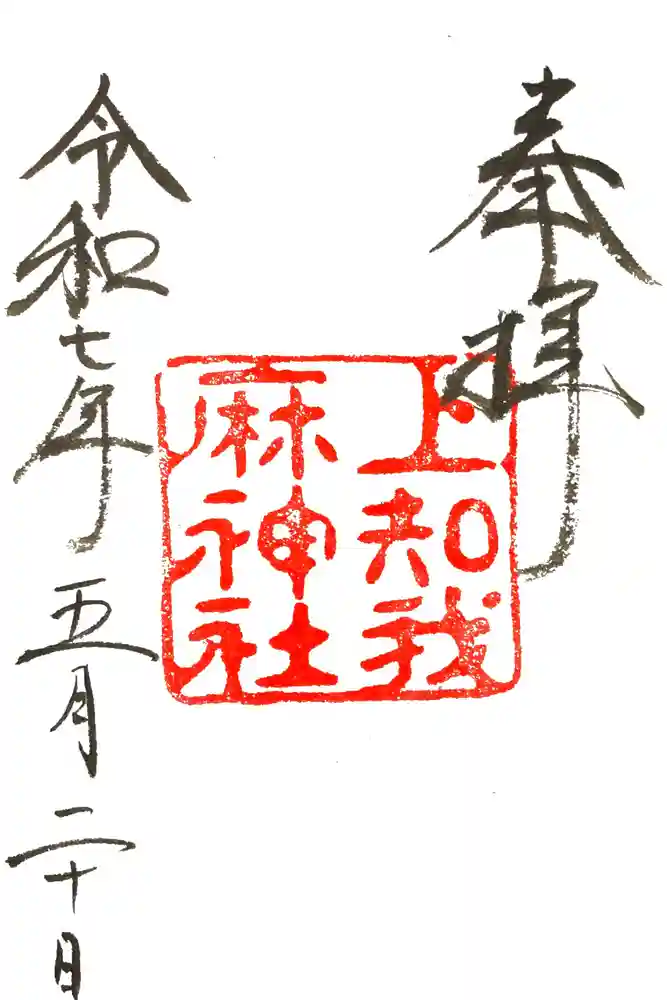 奉拝
上知我
麻神社
令和七年五月二十日